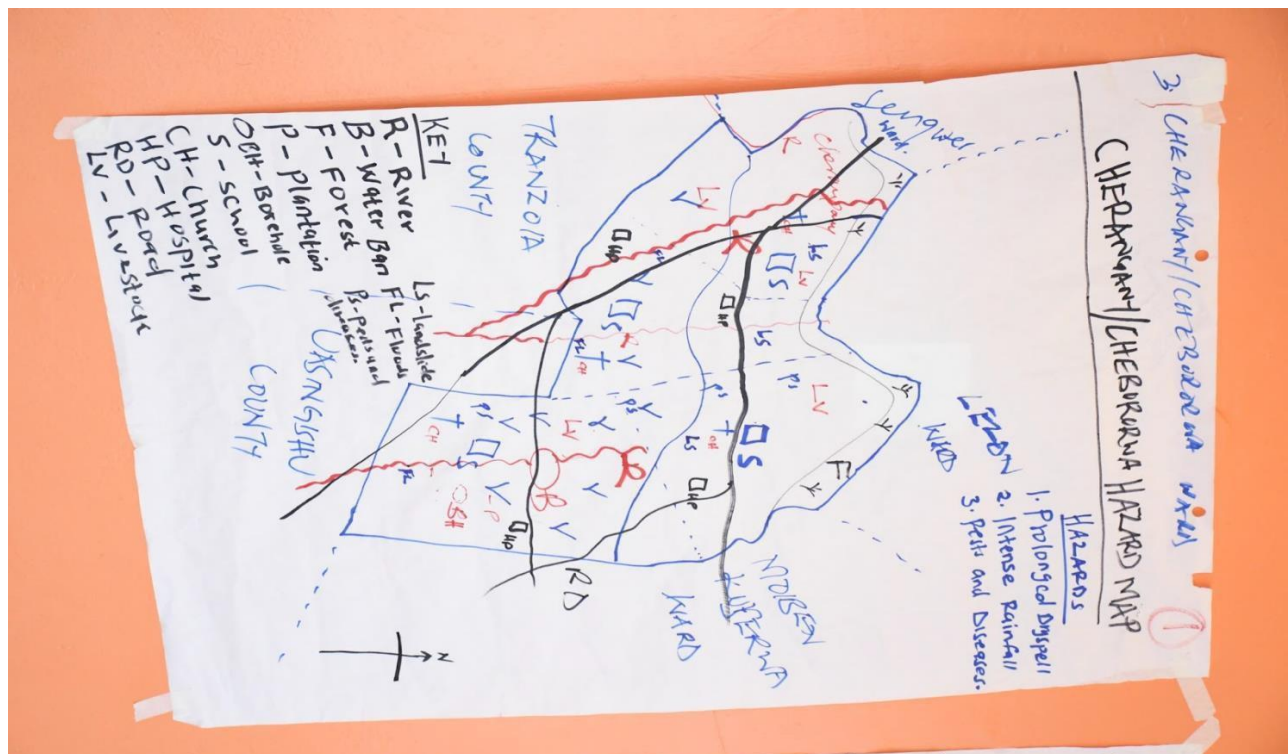 3. CHERANGANY/CHEBORORWA WARD
1
CHERANGANY/CHEBORORWA HAZARD MAP
HAZARDS
1. Prolonged Dryspell
2. Intense Rainfall
3. Pests and Diseases.
Sengwer
Ward.
LELAN
WARD
MOIBEN
KUSERWA
WARD
TRANZOIA
COUNTY
UASINGISHU
COUNTY
R
CH
LS
LV
F
S
HP
LS
PS
LV
PS
CH
S
LS
HP
LV
HP
FL
S
R
FL
CH
PS
LV
R
PS
CH
S
FL
B
P
OBH
HP
RD
N
KEY
R - River
B - Water Ban
F - Forest
P - Plantation
OBH - Borehole
S - School
CH - Church
HP - Hospital
RD - Road
LV - Livestock
Ls - landslide
FL - Floods
Ps - pests and
diseases.